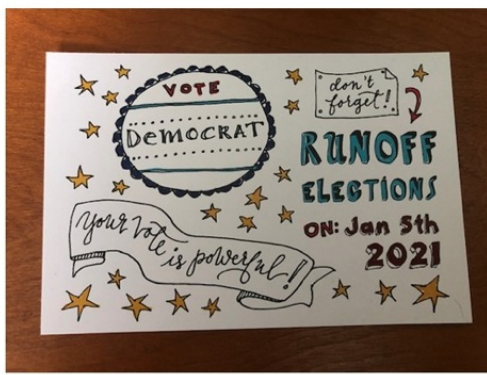 VOTE
DEMOCRAT
don't
forget!
RUNOFF
ELECTIONS
ON: Jan 5th
2021
Your Vote
is powerful!